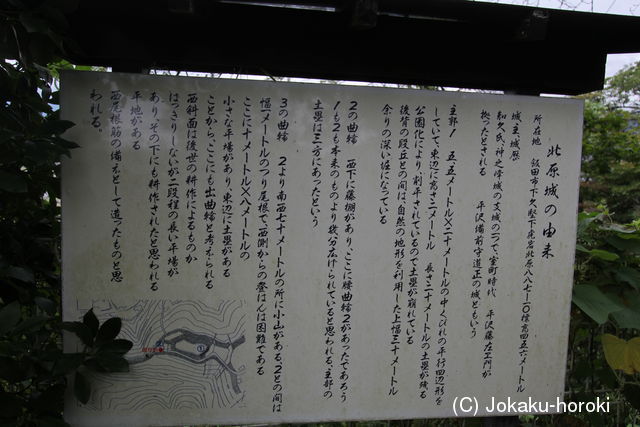 北原城の由来
所在地　飯田市下久堅下虎岩北原八八七ー一〇標高四五六メートル
城、主、城歴
知久氏、神之峰城の支城の一つで、室町時代　平沢藤左エ門が
拠ったとされる　　平沢備前守道正の城ともいう
主郭1　五・五メートル×二十メートルの中くびれの平行四辺形を
していて、東辺に高さ二メートル　長さ二十メートルの土塁が残る
公園化により、削平されているので土塁が崩れている
後背の段丘との間は、自然の地形を利用した上幅三十メートル
余りの深い堀になっている
2の曲輪　西下に藤棚があり、ここに腰曲輪2があったであろう
1も2も本来のものより幾分広げられていると思われる、主郭の
土塁は三方にあったという
3の曲輪　2より南西七十メートルの所に小山がある、2との間は
幅一メートルのつり尾根で西側からの登はんは困難である
ここに十メートル×八メートルの
小さな平場があり、東辺に土塁がある
ことから、ここにも出曲輪と考えられる
西斜面は後世の耕作によるものか
はっきりしないが二段程の長い平場が
あり、その下にも耕作されたと思われる
平地がある
西尾根筋の備えとして造ったものと思
われる。
(C) Jokaku-horoki